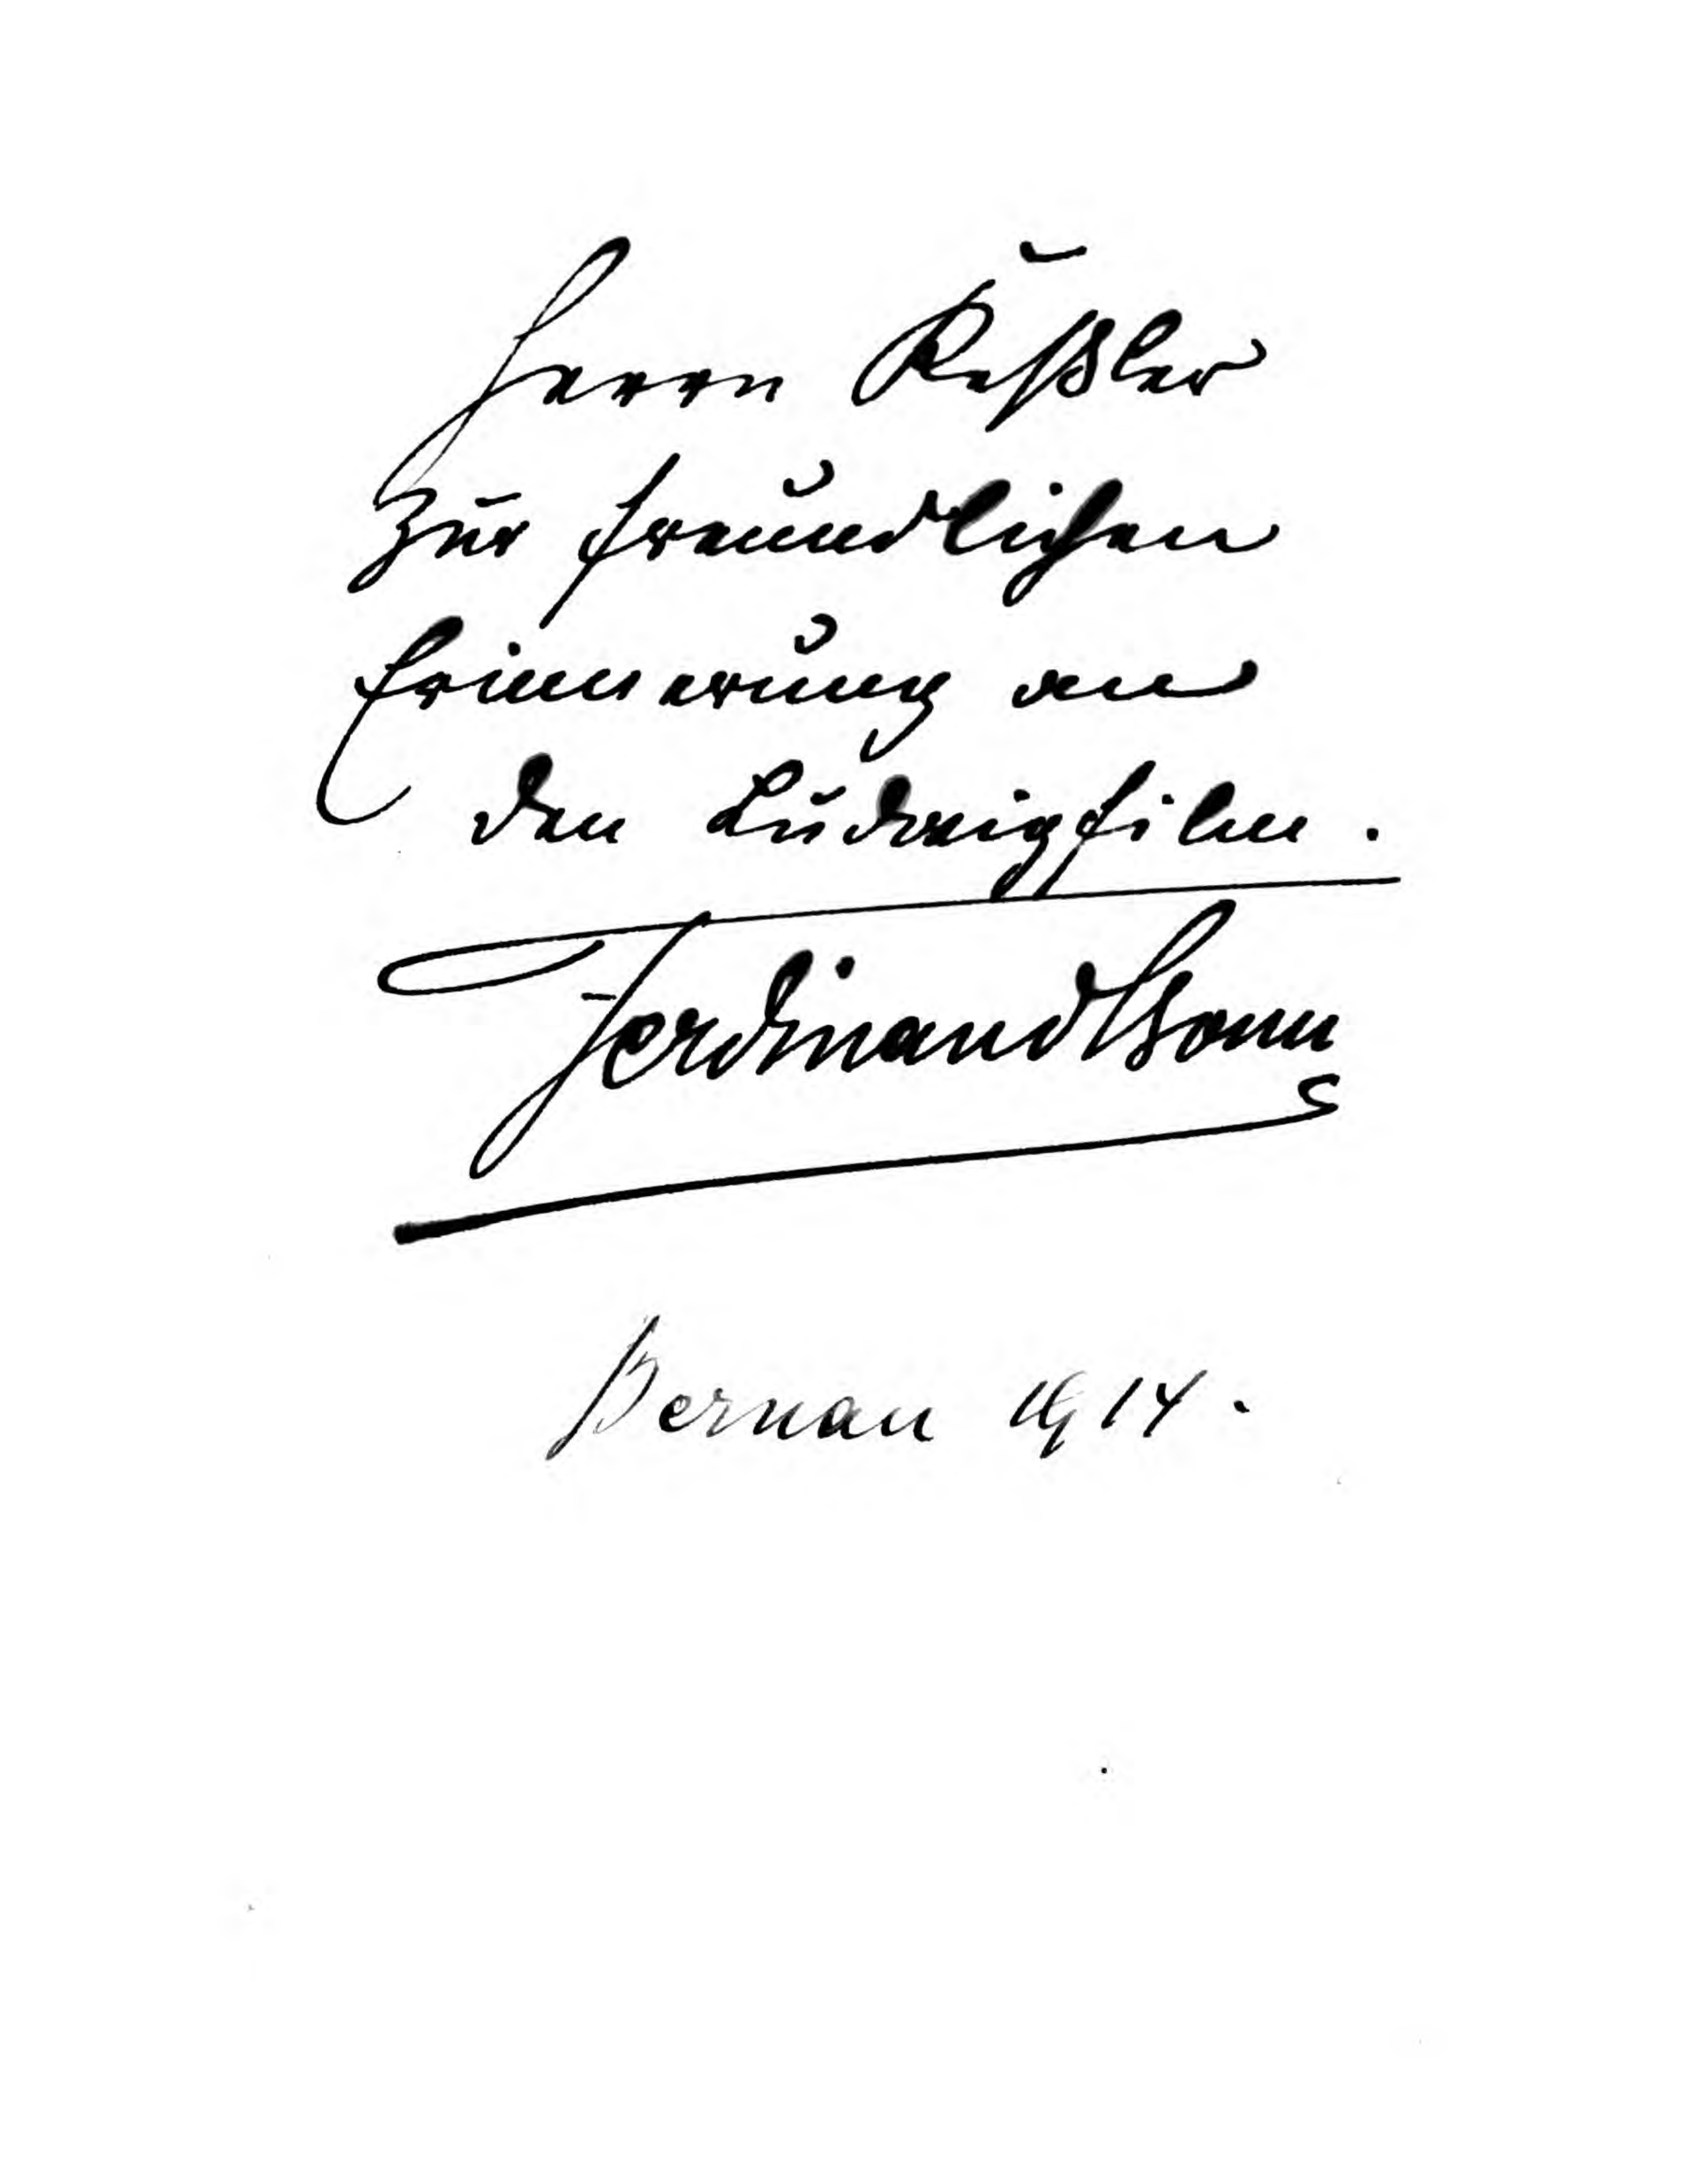 Herrn Keßler
zur freundlichen
Erinnerung an
den Ludwigfilm.
Ferdinand Bonn
Bernau 1914.